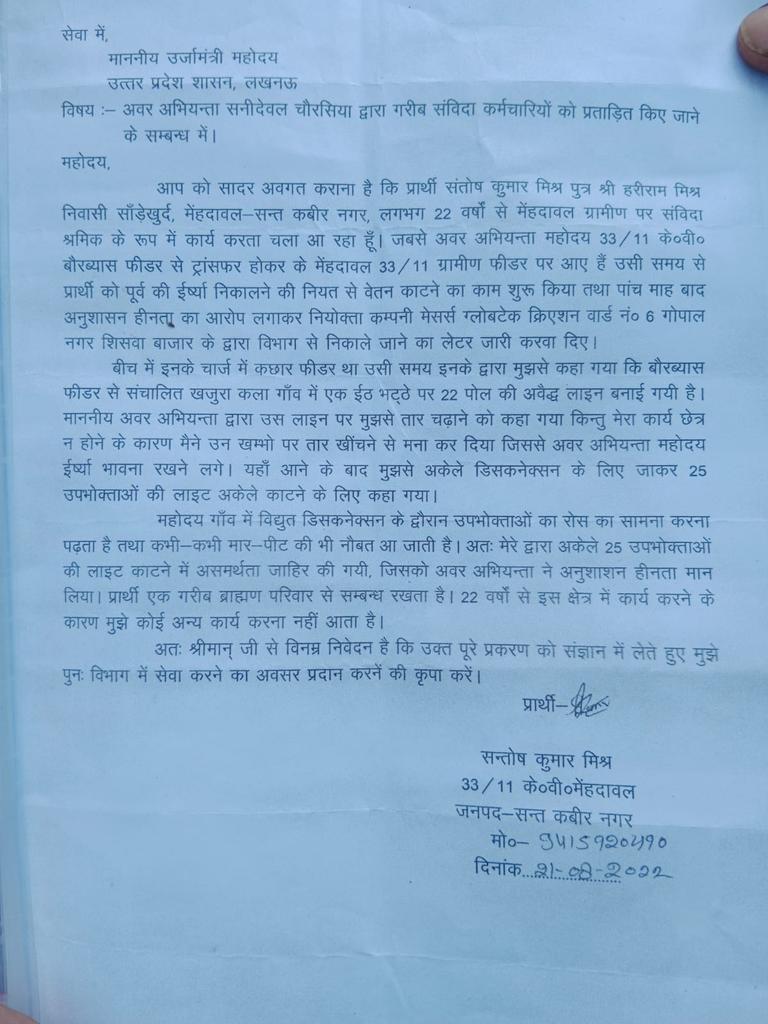 सेवा में,
माननीय उर्जामंत्री महोदय
उत्तर प्रदेश शासन, लखनऊ
विषय :– अवर अभियन्ता सनीदेवल चौरसिया द्वारा गरीब संविदा कर्मचारियों को प्रताड़ित किए जाने
के सम्बन्ध में।
महोदय,
आप को सादर अवगत कराना है कि प्रार्थी संतोष कुमार मिश्र पुत्र श्री हरीराम मिश्र
निवासी साँड़ेखुर्द, मेंहदावल–सन्त कबीर नगर, लगभग 22 वर्षो से मेंहदावल ग्रामीण पर संविदा
श्रमिक के रूप में कार्य करता चला आ रहा हूँ। जबसे अवर अभियन्ता महोदय 33/11 के०वी०
बौरब्यास फीडर से ट्रांसफर होकर के मेंहदावल 33/11 ग्रामीण फीडर पर आए हैं उसी समय से
प्रार्थी को पूर्व की ईर्ष्या निकालने की नियत से वेतन काटने का काम शुरू किया तथा पांच माह बाद
अनुशासन हीनता का आरोप लगाकर नियोक्ता कम्पनी मेसर्स ग्लोबटेक क्रिएशन वार्ड नं० 6 गोपाल
नगर शिसवा बाजार के द्वारा विभाग से निकाले जाने का लेटर जारी करवा दिए।
बीच में इनके चार्ज में कछार फीडर था उसी समय इनके द्वारा मुझसे कहा गया कि बौरब्यास
फीडर से संचालित खजुरा कला गाँव में एक ईठ भट्ठे पर 22 पोल की अवैद्ध लाइन बनाई गयी है।
माननीय अवर अभियन्ता द्वारा उस लाइन पर मुझसे तार चढ़ाने को कहा गया किन्तु मेरा कार्य छेत्र
न होने के कारण मैने उन खम्भो पर तार खींचने से मना कर दिया जिससे अवर अभियन्ता महोदय
ईर्ष्या भावना रखने लगे। यहाँ आने के बाद मुझसे अकेले डिसकनेक्सन के लिए जाकर 25
उपभोक्ताओं की लाइट अकेले काटने के लिए कहा गया।
महोदय गाँव में विद्युत डिसकनेक्सन के द्वौरान उपभोक्ताओं का रोस का सामना करना
पढ़ता है तथा कभी–कभी मार–पीट की भी नौबत आ जाती है। अतः मेरे द्वारा अकेले 25 उपभोक्ताओं
की लाइट काटने में असमर्थता जाहिर की गयी, जिसको अवर अभियन्ता ने अनुशाशन हीनता मान
लिया। प्रार्थी एक गरीब ब्राह्मण परिवार से सम्बन्ध रखता है। 22 वर्षो से इस क्षेत्र में कार्य करने के
कारण मुझे कोई अन्य कार्य करना नहीं आता है।
अतः श्रीमान् जी से विनम्र निवेदन है कि उक्त पूरे प्रकरण को संज्ञान में लेते हुए मुझे
पुनः विभाग में सेवा करने का अवसर प्रदान करनें की कृपा करें।
प्रार्थी–
सन्तोष कुमार मिश्र
33/11 के०वी०मेंहदावल
जनपद–सन्त कबीर नगर
मो०– 9415920490
दिनांक..21-08-2022